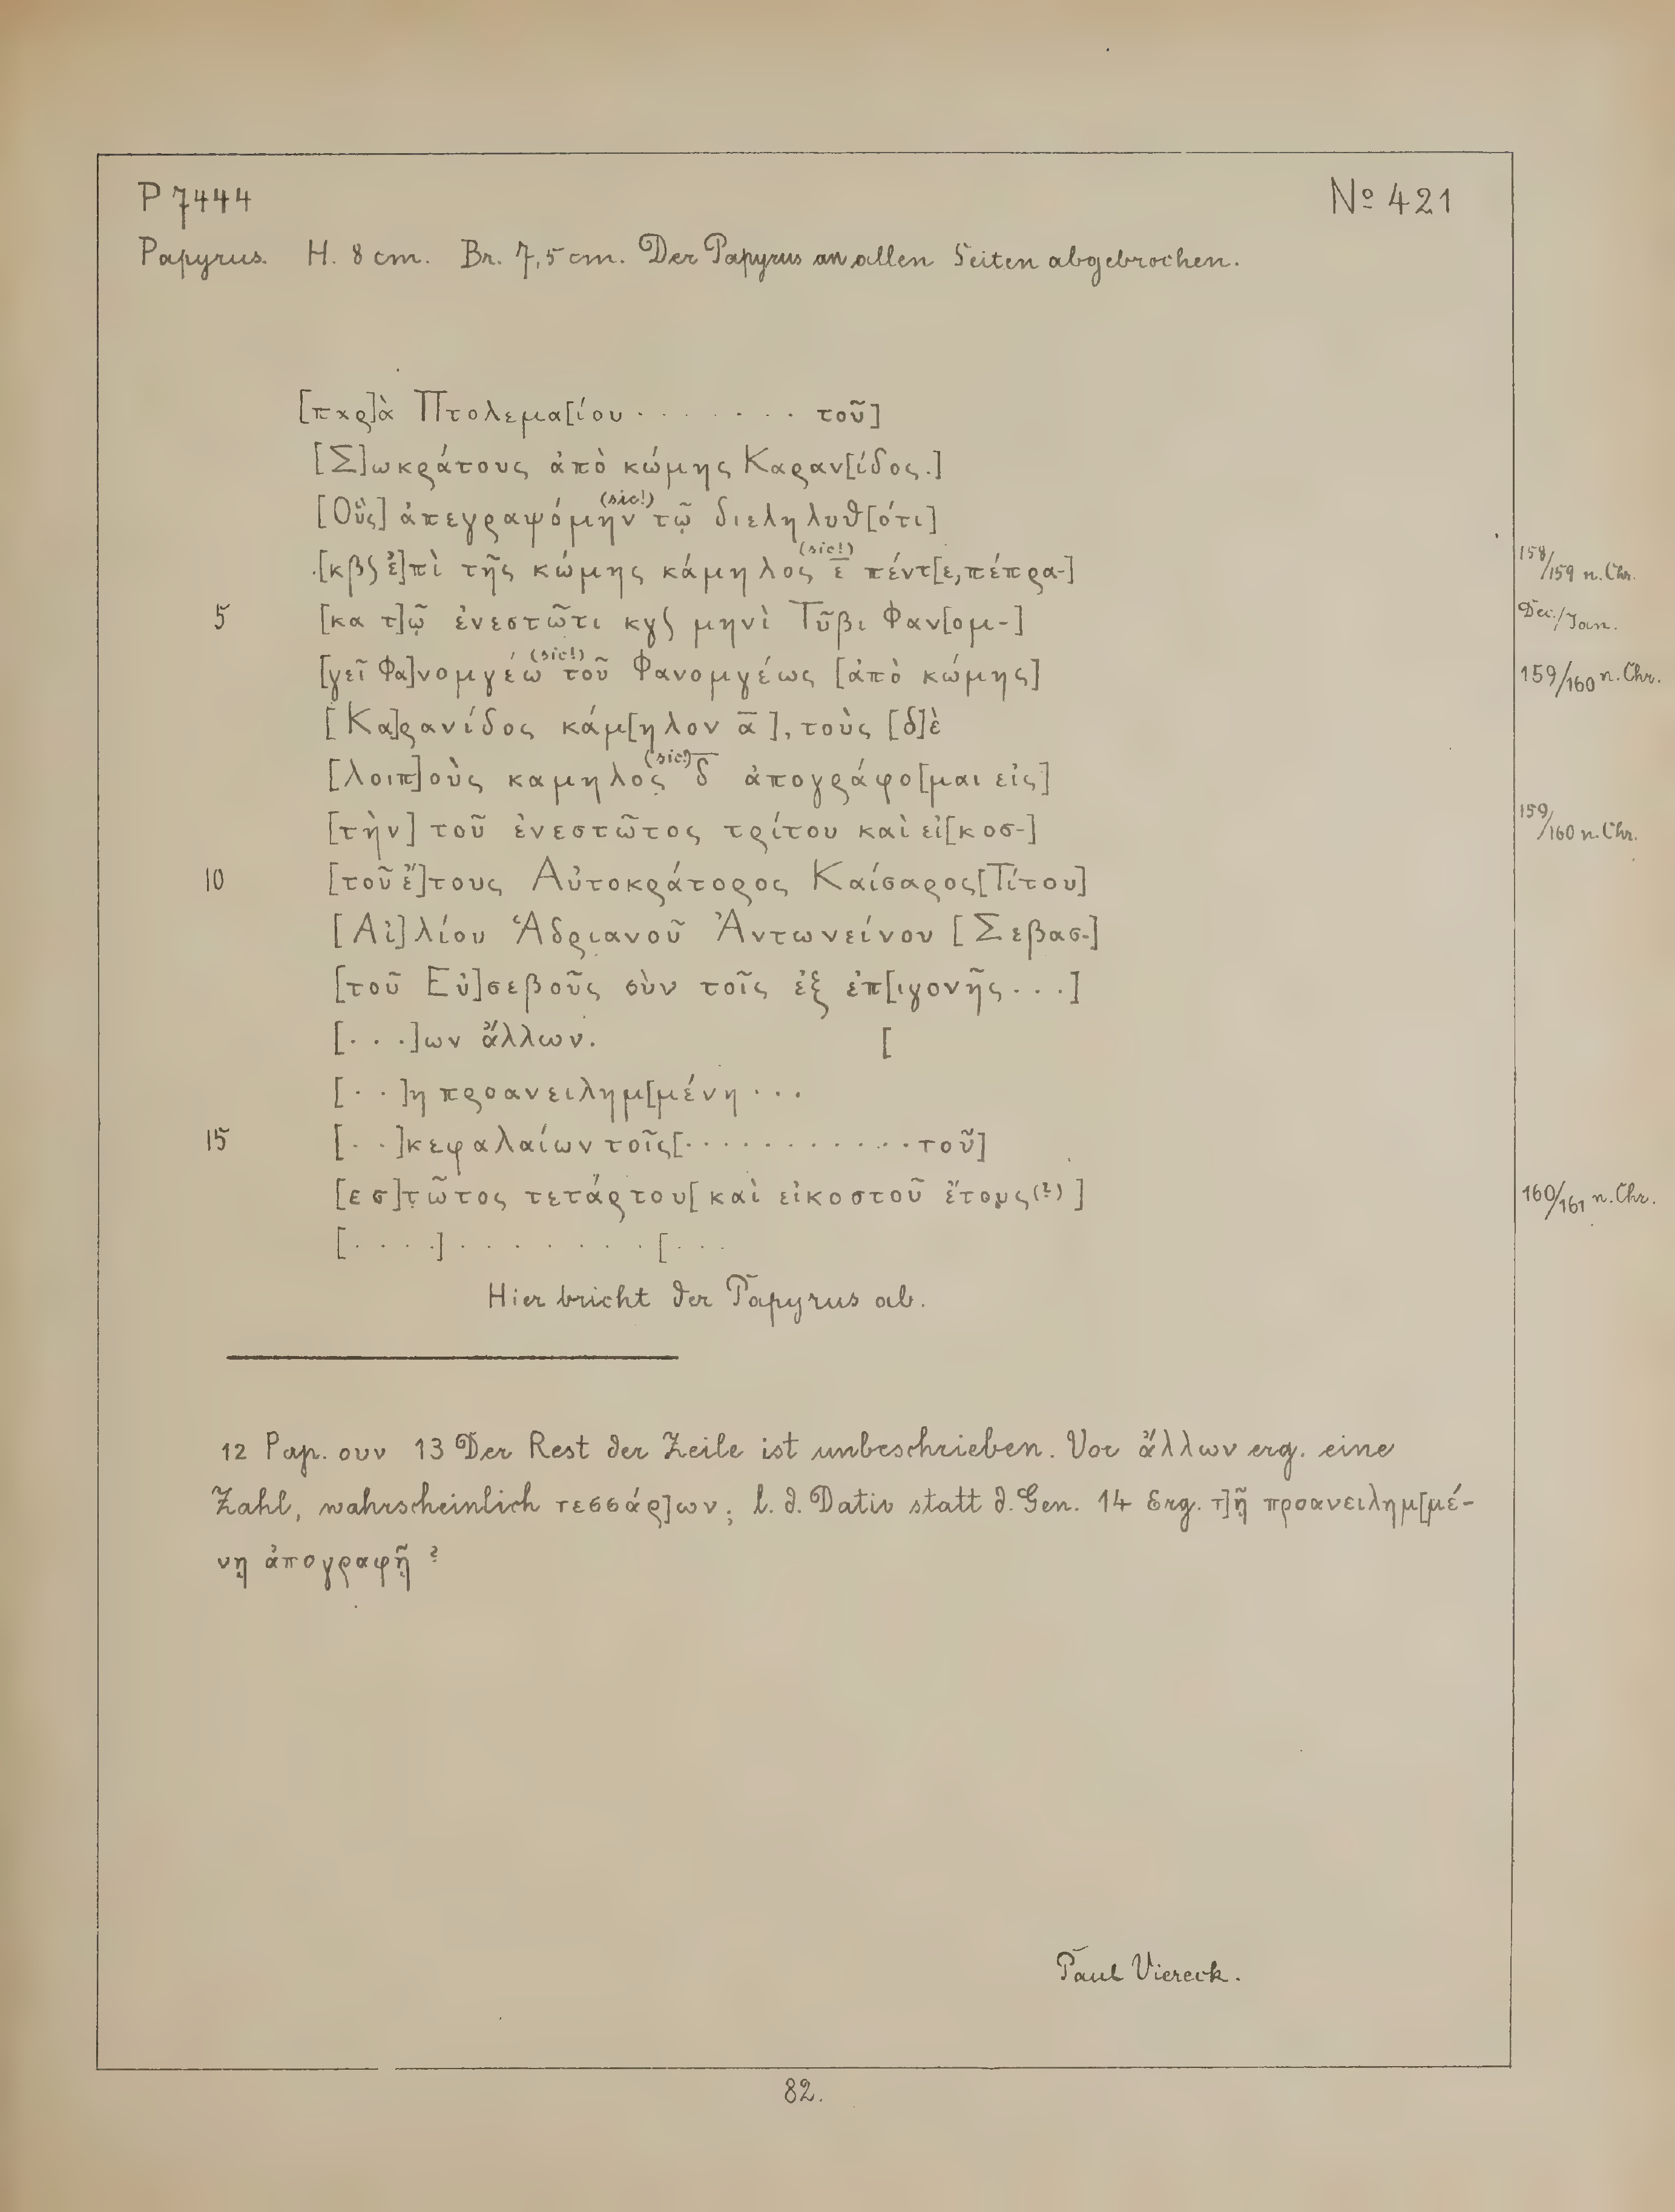 P 7444
№ 421
Papyrus. H. 8 cm. Br. 7,5 cm. Der Papyrus an allen Seiten abgebrochen.
[παρ]ὰ Πτολεμα[ίου · · · · · · · τοῦ]
[Σ]ωκράτους ἀπὸ κώμης Καραν[ίδος.]
[Οὓς] ἀπεγραψόμην (sic!) τῷ διεληλυθ[ότι]
[κβ ϛ ἐ]πὶ τῆς κώμης κάμηλος (sic!) ε̅ πέντ[ε, πέπρα-]
158/159 n. Chr.
5 [κα τ]ῷ ἐνεστῶτι κγ ϛ μηνὶ Τῦβι Φαν[ομ-]
Dec./Jan.
[γεῖ Φα]νομγέω (sic!) τοῦ Φανομγέως [ἀπὸ κώμης]
159/160 n. Chr.
[Κα]ρανίδος κάμ[ηλον α̅], τοὺς [δ]ὲ
[λοιπ]οὺς καμηλος (sic!) δ̅ ἀπογράφο[μαι εἰς]
[τὴν] τοῦ ἐνεστῶτος τρίτου καὶ εἰ[κοσ-]
159/160 n. Chr.
10 [τοῦ ἔ]τους Αὐτοκράτορος Καίσαρος [Τίτου]
[Αἰ]λίου Ἁδριανοῦ Ἀντωνείνου [Σεβασ-]
[τοῦ Εὐ]σεβοῦς σὺν τοῖς ἐξ ἐπ[ιγονῆς . . .]
[· · ·]ων ἄλλων. [
[· ·]η προανειλημ[μένη · · ·
15 [· ·]κεφαλαίων τοῖς[· · · · · · · · · · · τοῦ]
[εσ]τῶτος τετάρτου[ καὶ εἰκοστοῦ ἔτους (?) ]
160/161 n. Chr.
[· · · ·] · · · · · · · [· · ·
Hier bricht der Papyrus ab.
12 Pap. ουν 13 Der Rest der Zeile ist unbeschrieben. Vor ἄλλων erg. eine
Zahl, wahrscheinlich τεσσάρ]ων; l. d. Dativ statt d. Gen. 14 Erg. τ]ῇ προανειλημ[μέ-
νῃ ἀπογραφῇ ?
Paul Viereck.
82.